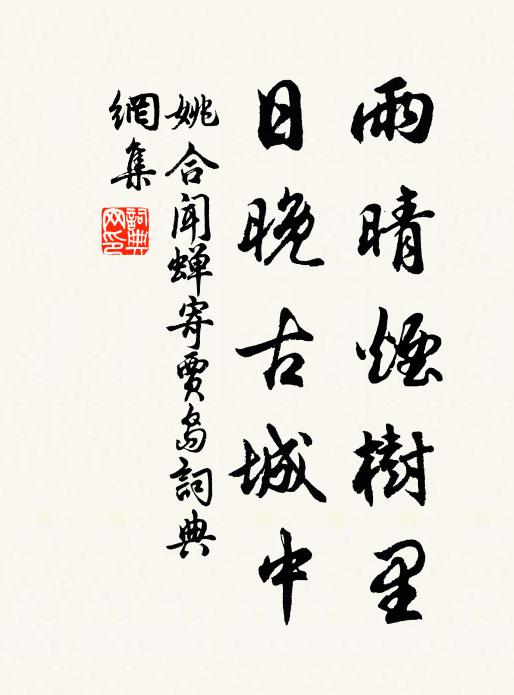 雨晴煙樹里
日晚古城中
姚合聞蟬寄賈島詞典
網集
詞典网印